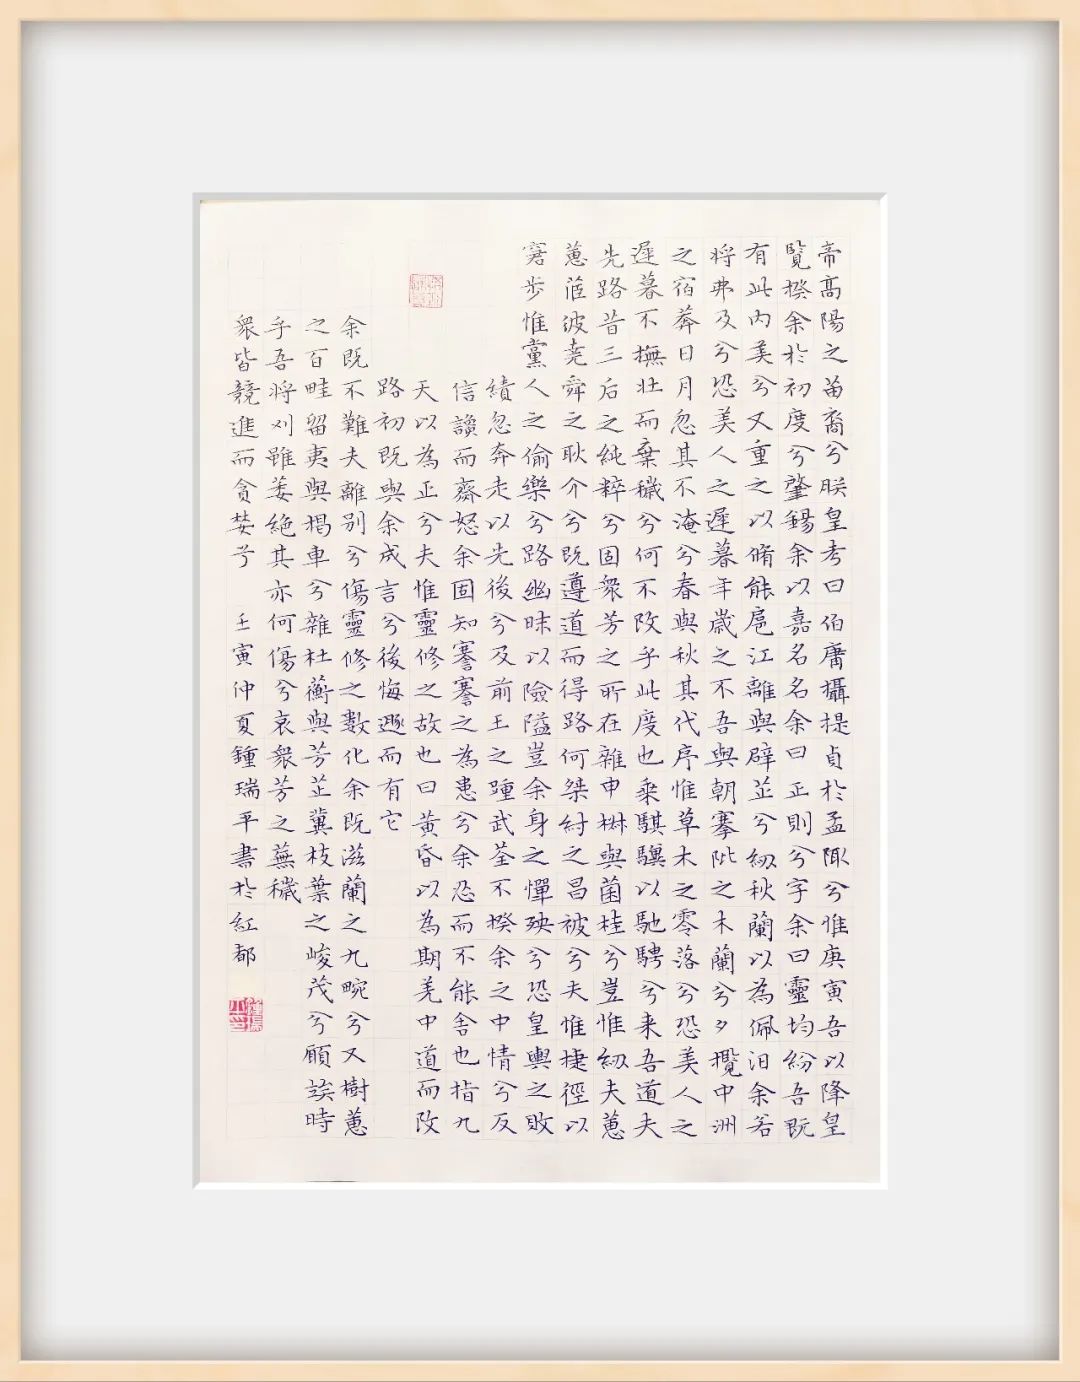 帝高陽之苗裔兮朕皇考曰伯庸攝提貞於孟陬兮惟庚寅吾以降皇
覽揆余於初度兮肇錫余以嘉名名余曰正則兮字余曰靈均紛吾既
有此內美兮又重之以脩能扈江離與辟芷兮紉秋蘭以為佩汨余若
將弗及兮恐美人之遲暮年歲之不吾與朝搴阰之木蘭兮夕攬中洲
之宿莽日月忽其不淹兮春與秋其代序惟草木之零落兮恐美人之
遲暮不撫壯而棄穢兮何不改乎此度也乘騏驥以馳騁兮来吾道夫
先路昔三后之純粹兮固衆芳之所在雜申椒與菌桂兮豈惟紉夫蕙
蕙茝彼堯舜之耿介兮既遵道而得路何桀紂之昌被兮夫惟捷徑以
窘步惟黨人之偷樂兮路幽昧以險隘豈余身之憚殃兮恐皇輿之敗
績忽奔走以先後兮及前王之踵武荃不揆余之中情兮反
信讒而齋怒余固知謇謇之為患兮余忍而不能舍也指九
天以為正兮夫惟靈修之故也曰黃昏以為期羌中道而改
路初既與余成言兮後悔遯而有它
余既不難夫離別兮傷靈修之數化余既滋蘭之九畹兮又樹蕙
之百畦留夷與揭車兮雜杜蘅與芳芷冀枝葉之峻茂兮願竢時
乎吾將刈雖萎絕其亦何傷兮哀衆芳之蕪穢
衆皆競進而貪婪兮 壬寅仲夏鍾瑞平書於紅都